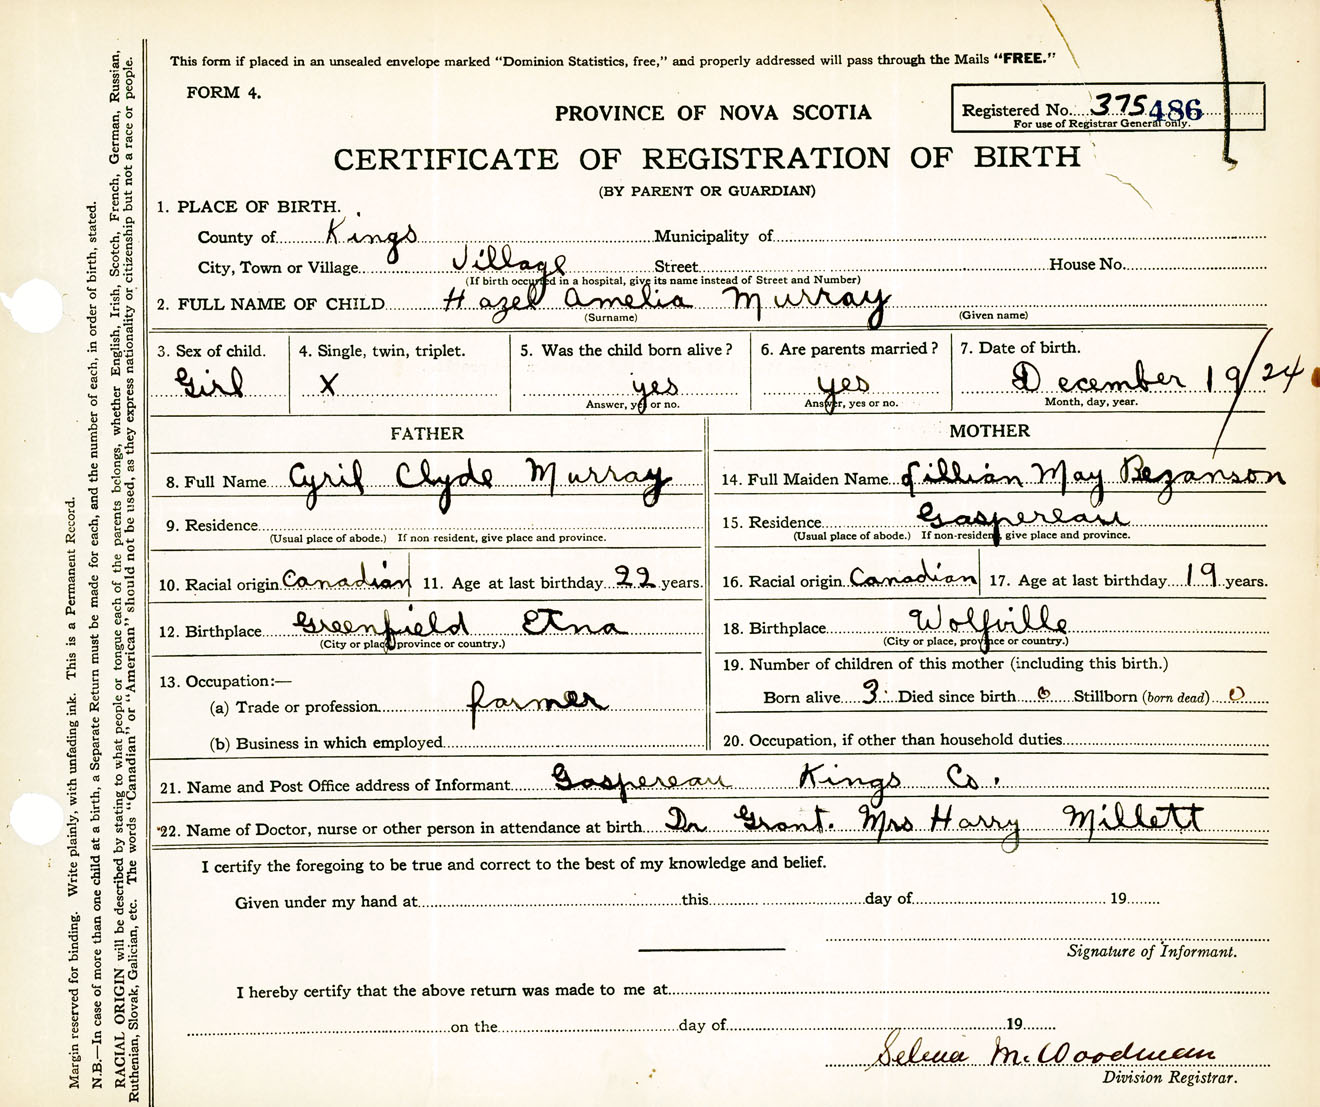 This form if placed in an unsealed envelope marked "Dominion Statistics, free," and properly addressed will pass through the Mails "FREE."
FORM 4.
PROVINCE OF NOVA SCOTIA
Registered No. 375 486
For use of Registrar General only.
CERTIFICATE OF REGISTRATION OF BIRTH
(BY PARENT OR GUARDIAN)
1. PLACE OF BIRTH.
County of Kings Municipality of
City, Town or Village Village Street House No.
(If birth occurred in a hospital, give its name instead of Street and Number)
2. FULL NAME OF CHILD Hazel Amelia Murray
(Surname) (Given name)
3. Sex of child. 4. Single, twin, triplet. 5. Was the child born alive? 6. Are parents married? 7. Date of birth.
Girl X yes yes December 19/24
Answer, yes or no. Answer, yes or no. Month, day, year.
FATHER MOTHER
8. Full Name Cyril Clyde Murray 14. Full Maiden Name Lillian May Bezanson
9. Residence 15. Residence Gaspereau
(Usual place of abode.) If non resident, give place and province. (Usual place of abode.) If non-resident, give place and province.
10. Racial origin Canadian 11. Age at last birthday 22 years. 16. Racial origin Canadian 17. Age at last birthday 19 years.
12. Birthplace Greenfield Etna 18. Birthplace Wolfville
(City or place, province or country.) (City or place, province or country.)
19. Number of children of this mother (including this birth.)
13. Occupation:—
(a) Trade or profession farmer Born alive 3 Died since birth 0 Stillborn (born dead) 0
(b) Business in which employed 20. Occupation, if other than household duties
21. Name and Post Office address of Informant Gaspereau Kings Co.
22. Name of Doctor, nurse or other person in attendance at birth Dr Grant. Mrs Harry Millett
I certify the foregoing to be true and correct to the best of my knowledge and belief.
Given under my hand at this day of 19
Signature of Informant.
I hereby certify that the above return was made to me at
on the day of 19
Selena M. Woodman
Division Registrar.
Margin reserved for binding. Write plainly, with unfading ink. This is a Permanent Record.
N.B.—In case of more than one child at a birth, a Separate Return must be made for each, and the number of each, in order of birth, stated.
RACIAL ORIGIN will be described by stating to what people or tongue each of the parents belongs, whether English, Irish, Scotch, French, German, Russian,
Ruthenian, Slovak, Galician, etc. The words "Canadian" or "American" should not be used, as they express nationality or citizenship but not a race or people.